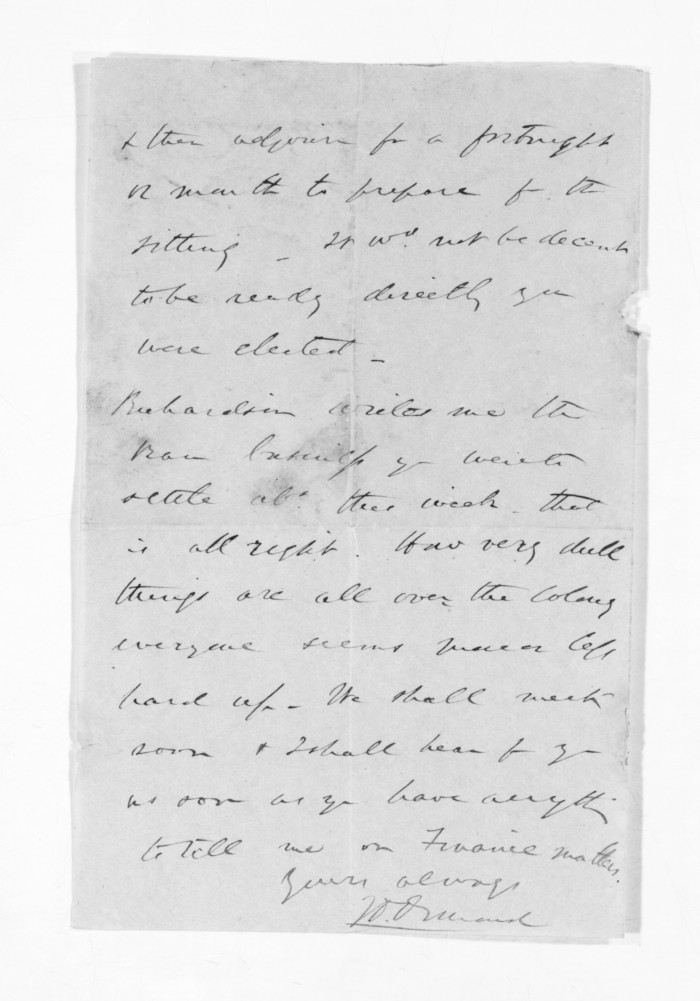 & then adjourn for a fortnight
or month to prepare for the
sitting _ It wd. not be decent
to be ready directly you
were elected _
Richardson writes me the
business you were to
settle abt. this week. that
is all right. How very dull
things are all over the Colony
everyone seems more or less
hard up _ We shall meet
soon & I shall hear fr you
as soon as you have anything
to tell me on Finance matters.
Yours always
JD. Ormond